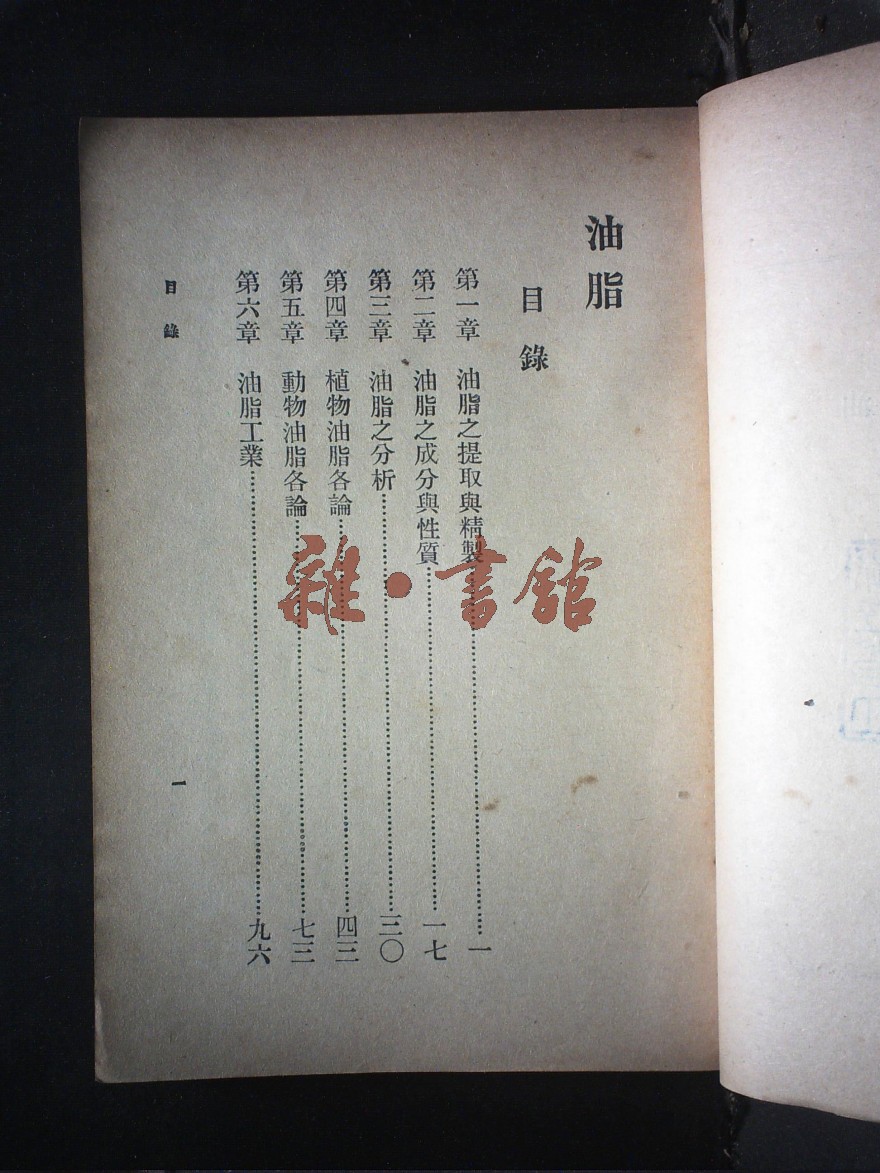 油脂
目錄
第一章 油脂之提取與精製……一
第二章 油脂之成分與性質……一七
第三章 油脂之分析……三〇
第四章 植物油脂各論……四三
第五章 動物油脂各論……七三
第六章 油脂工業……九六
目錄
一
雜·書館